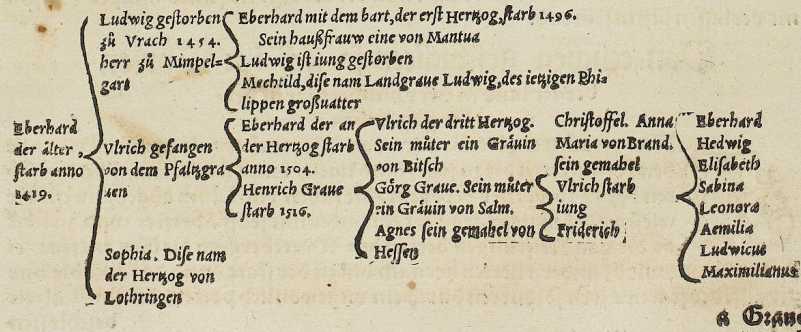 Eberhard
der älter,
starb anno
1419.
Ludwig gestorben
zů Vrach 1454.
herr zů Mimpel=
gart
Vlrich gefangen
von dem Pfaltzgra
uen
Sophia. Dise nam
der Hertzog von
Lothringen
Eberhard mit dem bart, der erst Hertzog, starb 1496.
Sein haußfrauw eine von Mantua
Ludwig ist iung gestorben
Mechtild, dise nam Landgraue Ludwig, des ietzigen Phi=
lippen großuatter
Eberhard der an
der Hertzog starb
anno 1504.
Henrich Graue
starb 1516.
Vlrich der dritt Hertzog.
Sein můter ein Gräuin
von Bitsch
Görg Graue. Sein můter
ein Gräuin von Salm.
Agnes sein gemahel von
Hessen
Christoffel. Anna
Maria von Brand.
sein gemahel
Vlrich starb
iung
Friderich
Eberhard
Hedwig
Elisabeth
Sabina
Leonora
Aemilia
Ludwicus
Maximilianus